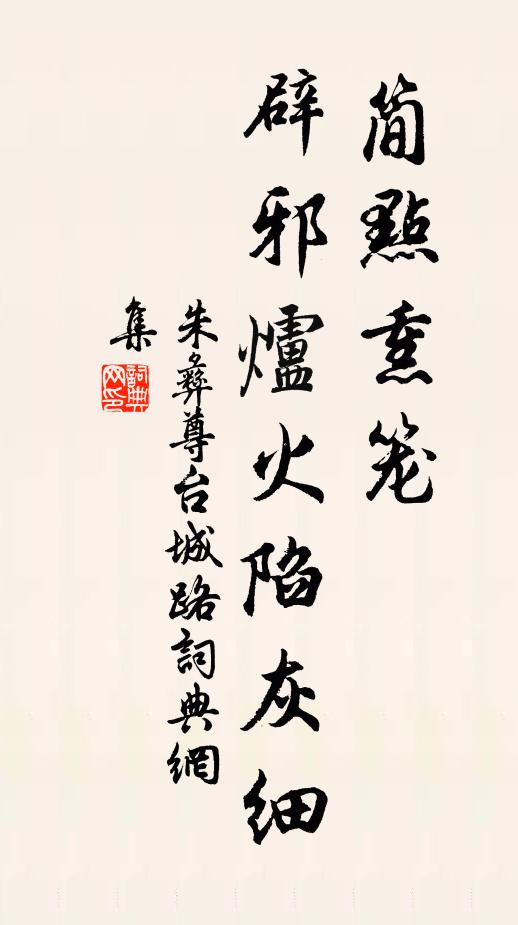 简點熏笼
辟邪爐火陷灰细
朱彝尊台城路詞典網
集
詞典网印